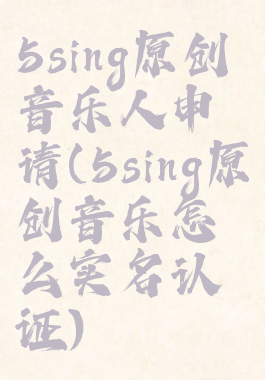 5sing原创
音乐人申
请(5sing原
创音乐怎
么实名认
证)